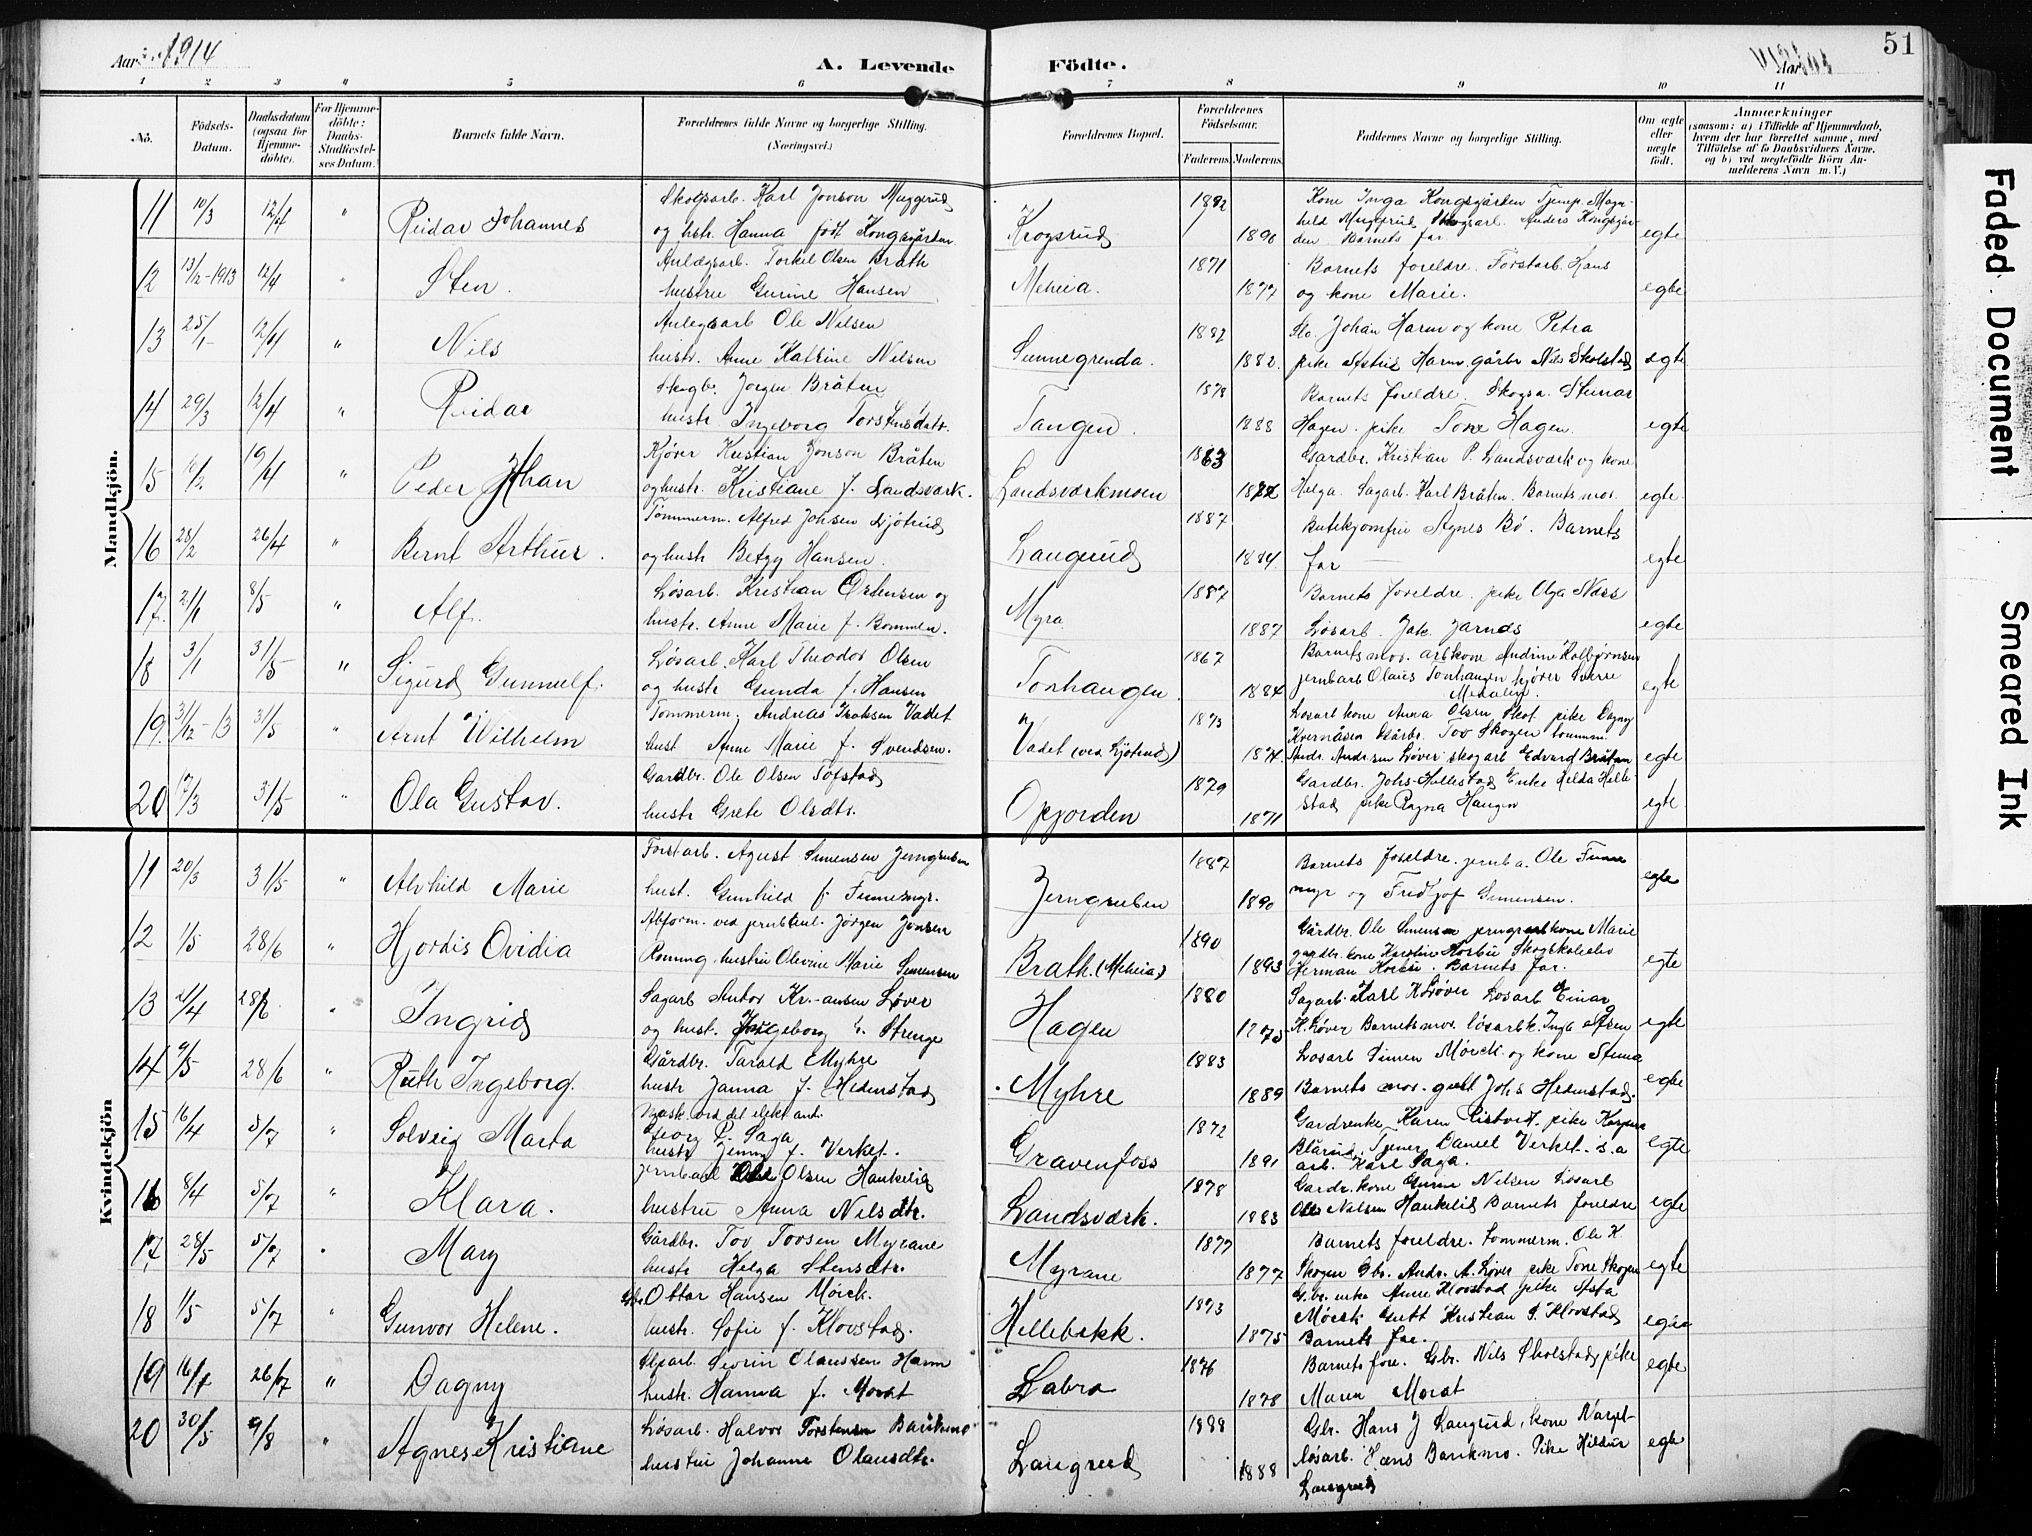 Aar 1914
A. Levende
Födte.
Aar
51
1 2 3 " 5 6 7 8 9 10 11
No.
Födsels-Datum.
Daabsdatum (ogsaa for Hjemmedöbte).
For Hjemmedöbte: Daabs-Stadfæstelses Datum.
Barnets fulde Navn.
Forældrenes fulde Navne og borgerlige Stilling. (Næringsvei.)
Forældrenes Bopæl.
Forældrenes Födselsaar.
Faderens. Moderens.
Faddernes Navne og borgerlige Stilling.
Om ægte eller uægte født.
Anmærkninger
(saasom: a) i Tilfælde af Hjemmedaab, hvem der har forrettet samme, med Tilföielse af to Daabsvidners Navne, og b) ved uægtefödte Börn Anmelderens Navn m. V.)
Mandkjön.
11 10/3 12/4 " Reidar Johannes
Skogsarb. Karl Jonson Muggerud
og hstr. Hanna født Kongsgården
Krogsrud
1892
1890
Kone Inga Kongsgården Tjenp. Magn-
hild Muggerud Skogsarb. Anders Kongsgår-
den Barnets far
egte
12 13/12-1913 12/4 " Sten.
Anlægsarb. Torkil Olsen Bråth
hustru Gurine Hansen
Meheia.
1871
1877
Barnets foreldre. Forstarb. Hans
og kone Marie.
egte
13 25/1 12/4 " Nils
Anlegsarb Ole Nilsen
hustr. Anne Katrine Nilsen
Sunnegrenda.
1882
1882.
Johan Harm og kone Petra
pike Astrid Harm gårbr Nils Skolstad
egte
14 29/3 12/4 " Reidar
Skogb. Jørgen Bråten
hustr Ingeborg Torstensdatr.
Tangen
1878
1888
Barnets foreldre. Skogsa. Steinar
Hagen. pike Tone Hagen.
egte
15 19/4 " Peder Johan
Kjører Kristian Jonson Bråten
og hustr. Kristiane f. Landsværk.
Landsværkmoen
1863
Gardbr. Kristian P. Landsværk og kone
Helga. Sagarb. Karl Bråten. Barnets mor.
egte.
16 28/2 26/4 " Bernt Arthur.
Tømmerm. Alfred Johsen Ljøterud
og hustr Betzy Hansen.
Langerud
1887
1884.
Butikjomfru Agnes Bø. Barnets
far
egte
17. 2/1 8/5 " Alf.
Løsarb. Kristian Ordensen og
hustr. Anne Marie f. Bommen.
Myra
1887
1887
Barnets foreldre. pike Olga Næss
Løsarb. Jak. Jarnæs
egte
18 3/1 31/5 " Sigurd Gunnulf.
Løsarb. Karl Theodor Olsen
og hustr Gunda f. Hansen
Tonhaugen.
1867
1884
Barnets mor. arbkone Andrine Kolbjørnsen
jernbarb Olaus Tonhaugen kjører Sverre
Medalen
egte
19. 31/12-13 31/5 " Arnt Wilhelm
Tommerm. Andreas Isaksen Vadet
hust Anne Marie f. Svendsen.
Vadet (ved Ljøterud)
1873
1874
Losarb kone Anna Olsen Skot. pike Dagny
Kvernåsen Gårbr. Tov Skogen tommm.
Andr. Andrsen Løver skogarb Edvard Bråten
egte
20 17/3 31/5 " Ola Gustav.
Gardbr. Ole Olsen Tofstad
hustr Grete Olsdtr.
Opjorden
1879
1871
Gardbr. Johs Hellestad Enke Hilda Helle-
stad pike Ragna Haugen
egte
Kvindekjön
11 20/3 31/5 " Alvhild Marie
Forstarb. Agust Simensen Jerngruben
hust. Gunhild f. Funnemyr.
Jerngruben
1887
1890
Barnets foreldre. jernba. Ole Funne
myr og Fridtjof Simensen.
egte
12 1/5 28/6 " Hjordis Ovidia
Abform. ved jernbeul. Jørgen Jonsen
Roming. hustru Olevine Marie Simensen
Brath. (Meheia)
1890
1893
Gårdbr. Ole Simensen jerngrarb kone Marie
gardbr. kone Karoline Korbu Skogskoleelev
Herman Korbu. Barnets far.
egte
13 2/4 28/6 " Ingrid
Sagarb Anton Kr.-ansen Løver
og hust. Ingeborg f. Strenge
Hagen
1880
Sagarb. Karl K Løver Losarb Einar
K. Løver Barnets mor. løsarbk. Inga Olsen
egte
14 9/5 28/6 " Ruth Ingeborg.
Gårdbr. Tarald Myhre
hustr Janna f. Hedenstad
Myhre
1883
1889
Losarb Simen Mørck og kone Stina
Barnets mor. gutt Johs Hedenstad.
egte
15 16/4 5/7 " Solveig Marta
Mask. ved det elekt. ant.
Georg P. Saga
hustr Jenny f. Verket.
Gravenfoss
1872
1891
Gardrenke Karen Ristvedt pike Kaspara
Blårud. Tjener Daniel Verket. s. a
arb. Karl Saga.
egte
16 8/4 5/7 " Klara.
jernbarb Ole Olsen Haukelid
hustru Anna Nilsdtr.
Landsværk.
1878
1883
Gardr. kone Gunne Nilsen Losarb
Ole Nilsen Haukelid Barnets foreldre
egte
17 28/5 5/7 " Mary
Gårdbr. Tov Tovsen Myrane
hustr Helga Stensdtr.
Myrane
1877
1877
Barnets foreldre. Tommerm. Ole K
Skogen Gbr. Andr. A. Løver pike Tone Skogen
egte
18 1/5 5/7 " Gunvor Helene.
Gbr Ottar Hansen Mörck.
hustr. Sofie f. Klovstad.
Hellebækk.
1873
1875
G.br. enke Anne Klovstad pike Asta
Mörck Gutt Kristian S. Klovstad
Barnets far.
19 26/7 " Dagny
Sevrin Olaussen Harm
hustr. Hanna f. Morat
Labro
1876
1878
Barnets fore. Gbr. Nils Skolstad, pike
Maren Morat
egte
20 30/5 9/8 " Agnes Kristiane
Løsarb. Halvor Torstensen Bankmo
hustru Johanne Olausdtr.
Langerud
1888
1888
Gbr. Hans J Langerud, kone Margit
løsarb. Hans Bankmo. Pike Hildur
Langerud
egte
Faded Document
Smeared Ink